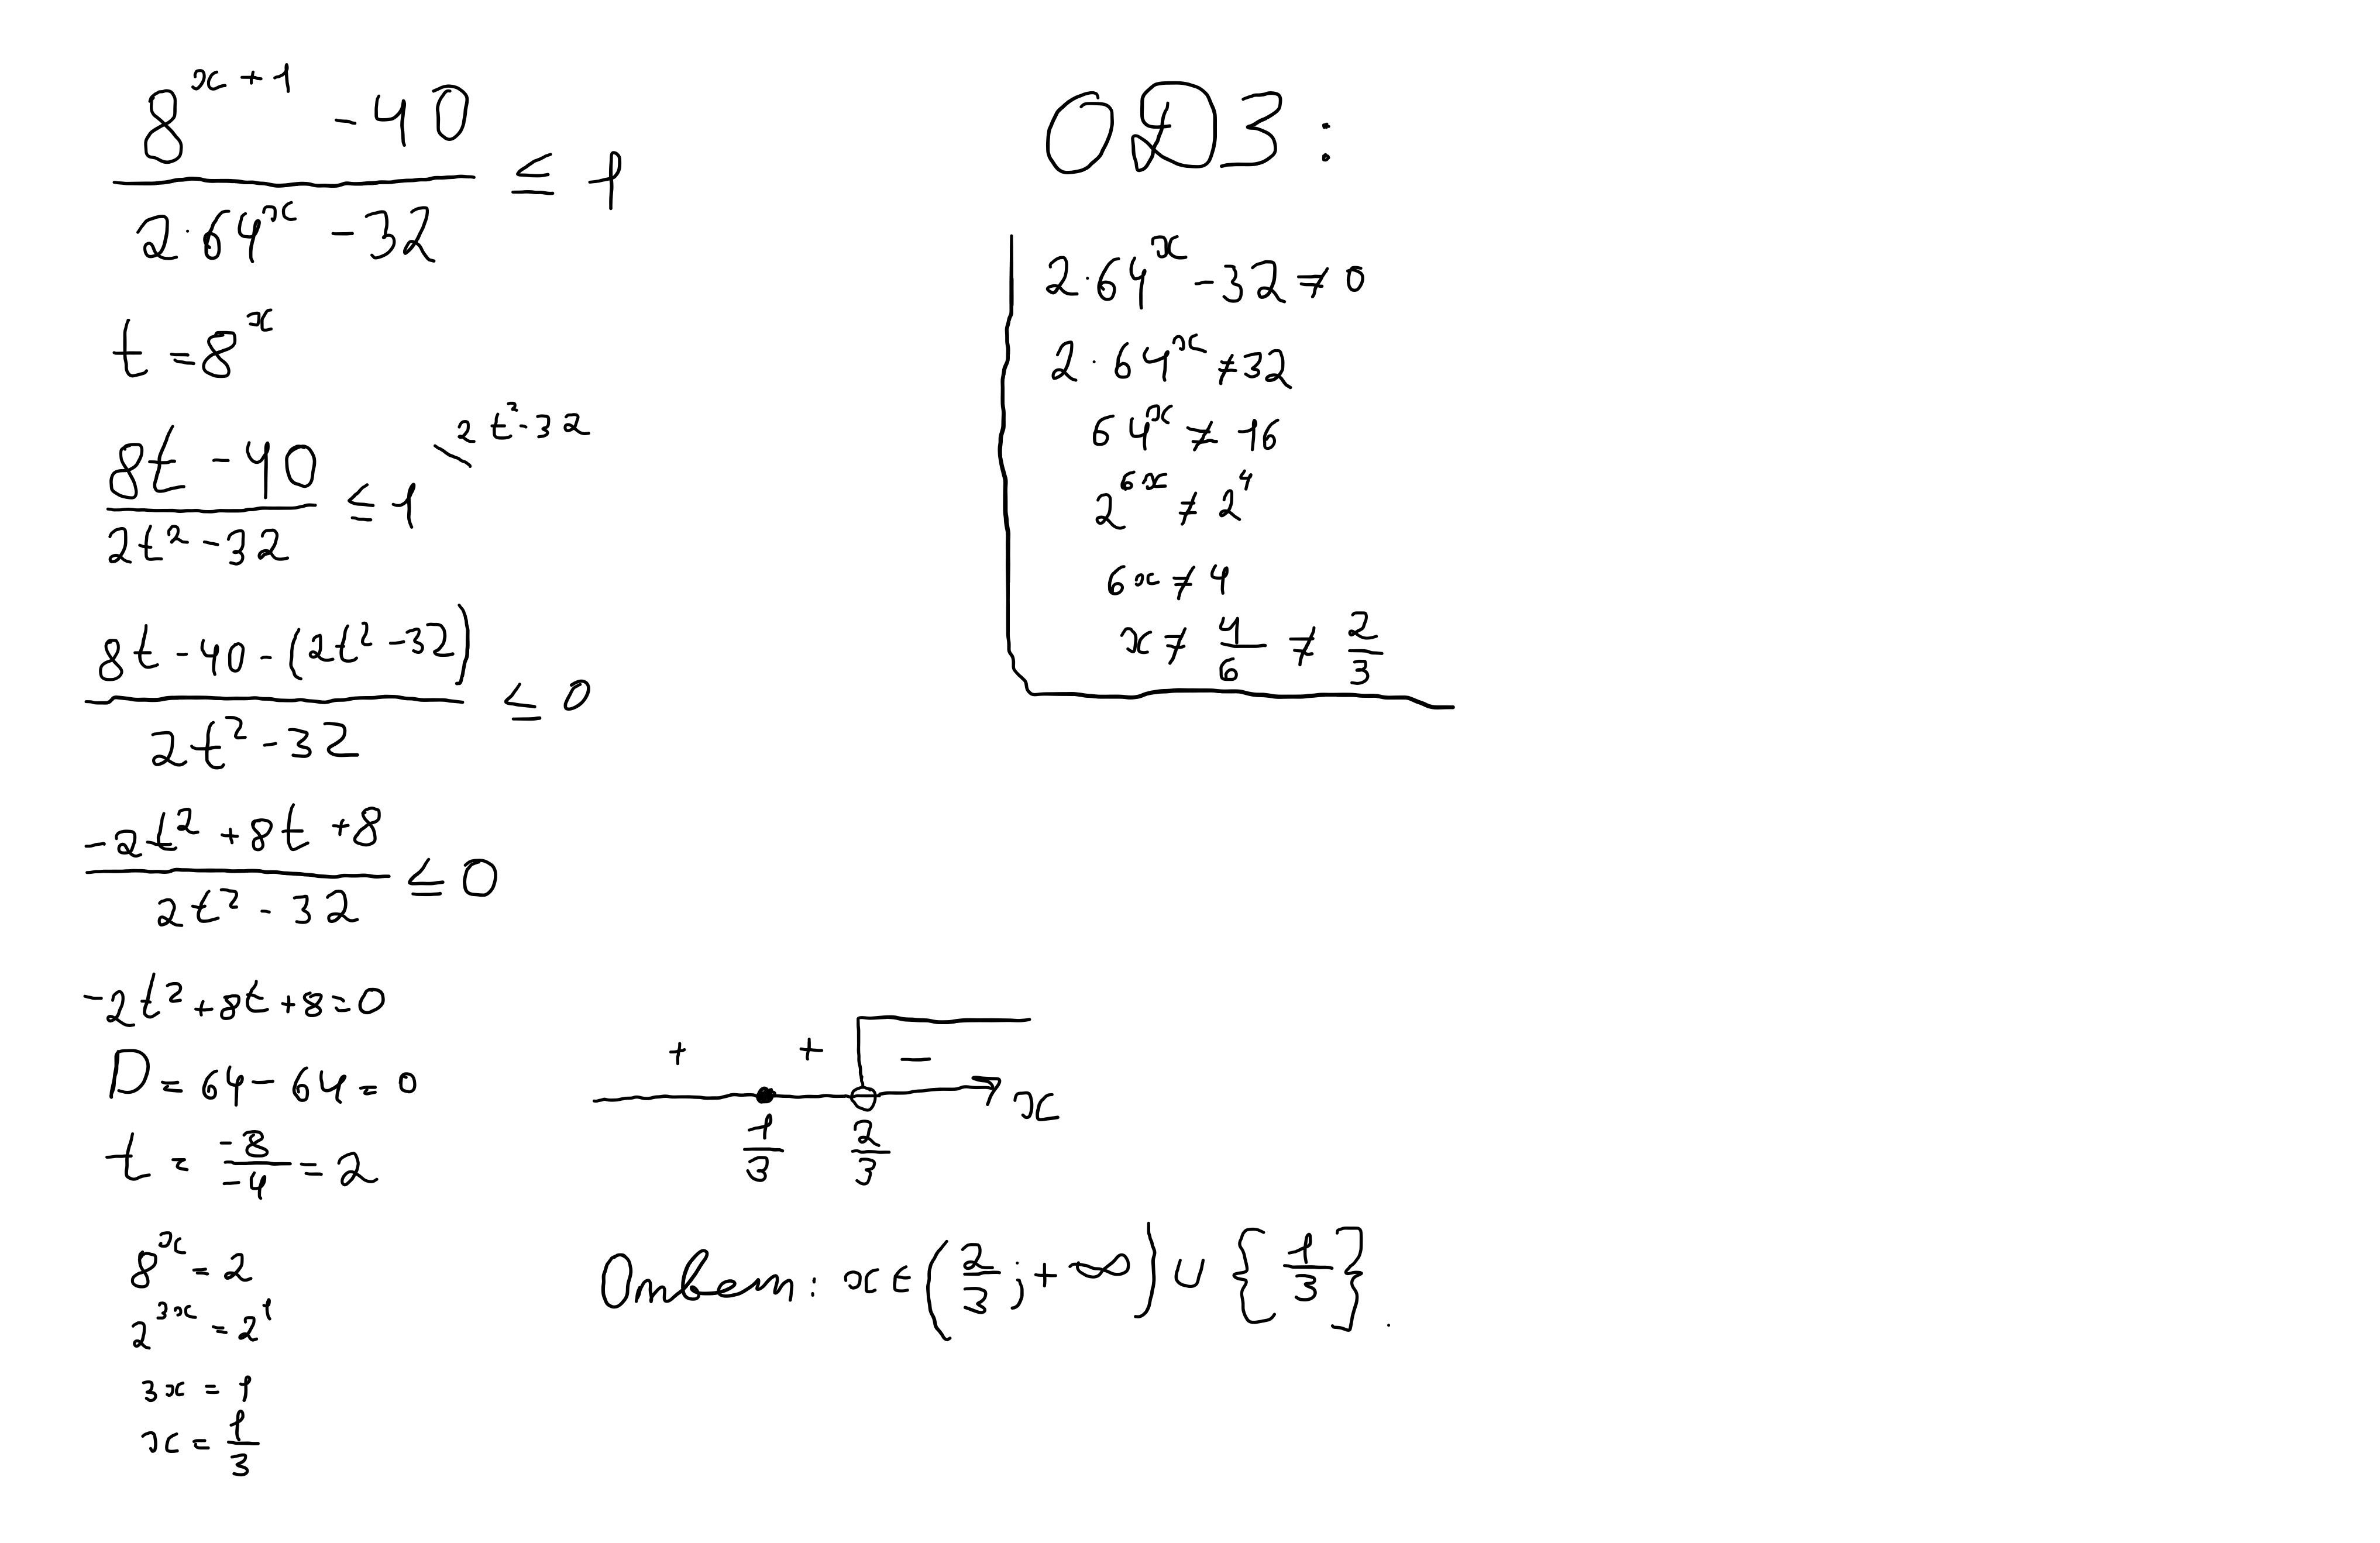 8^{x+1} - 40 / 2·64^x - 32 ≤ 1
t = 8^x
8t - 40 / 2t² - 32 ≤ 1 \ 2t² - 32
8t - 40 - (2t² - 32) / 2t² - 32 ≤ 0
-2t² + 8t + 8 / 2t² - 32 ≤ 0
-2t² + 8t + 8 = 0
D = 64 - 64 = 0
t = -8/-4 = 2
8^x = 2
2^{3x} = 2^1
3x = 1
x = 1/3
ОДЗ:
2·64^x - 32 ≠ 0
2·64^x ≠ 32
64^x ≠ 16
2^{6x} ≠ 2^4
6x ≠ 4
x ≠ 4/6 ≠ 2/3
+ + -
1/3 2/3 x
Ответ: x ∈ (2/3; +∞) ∪ {1/3}.